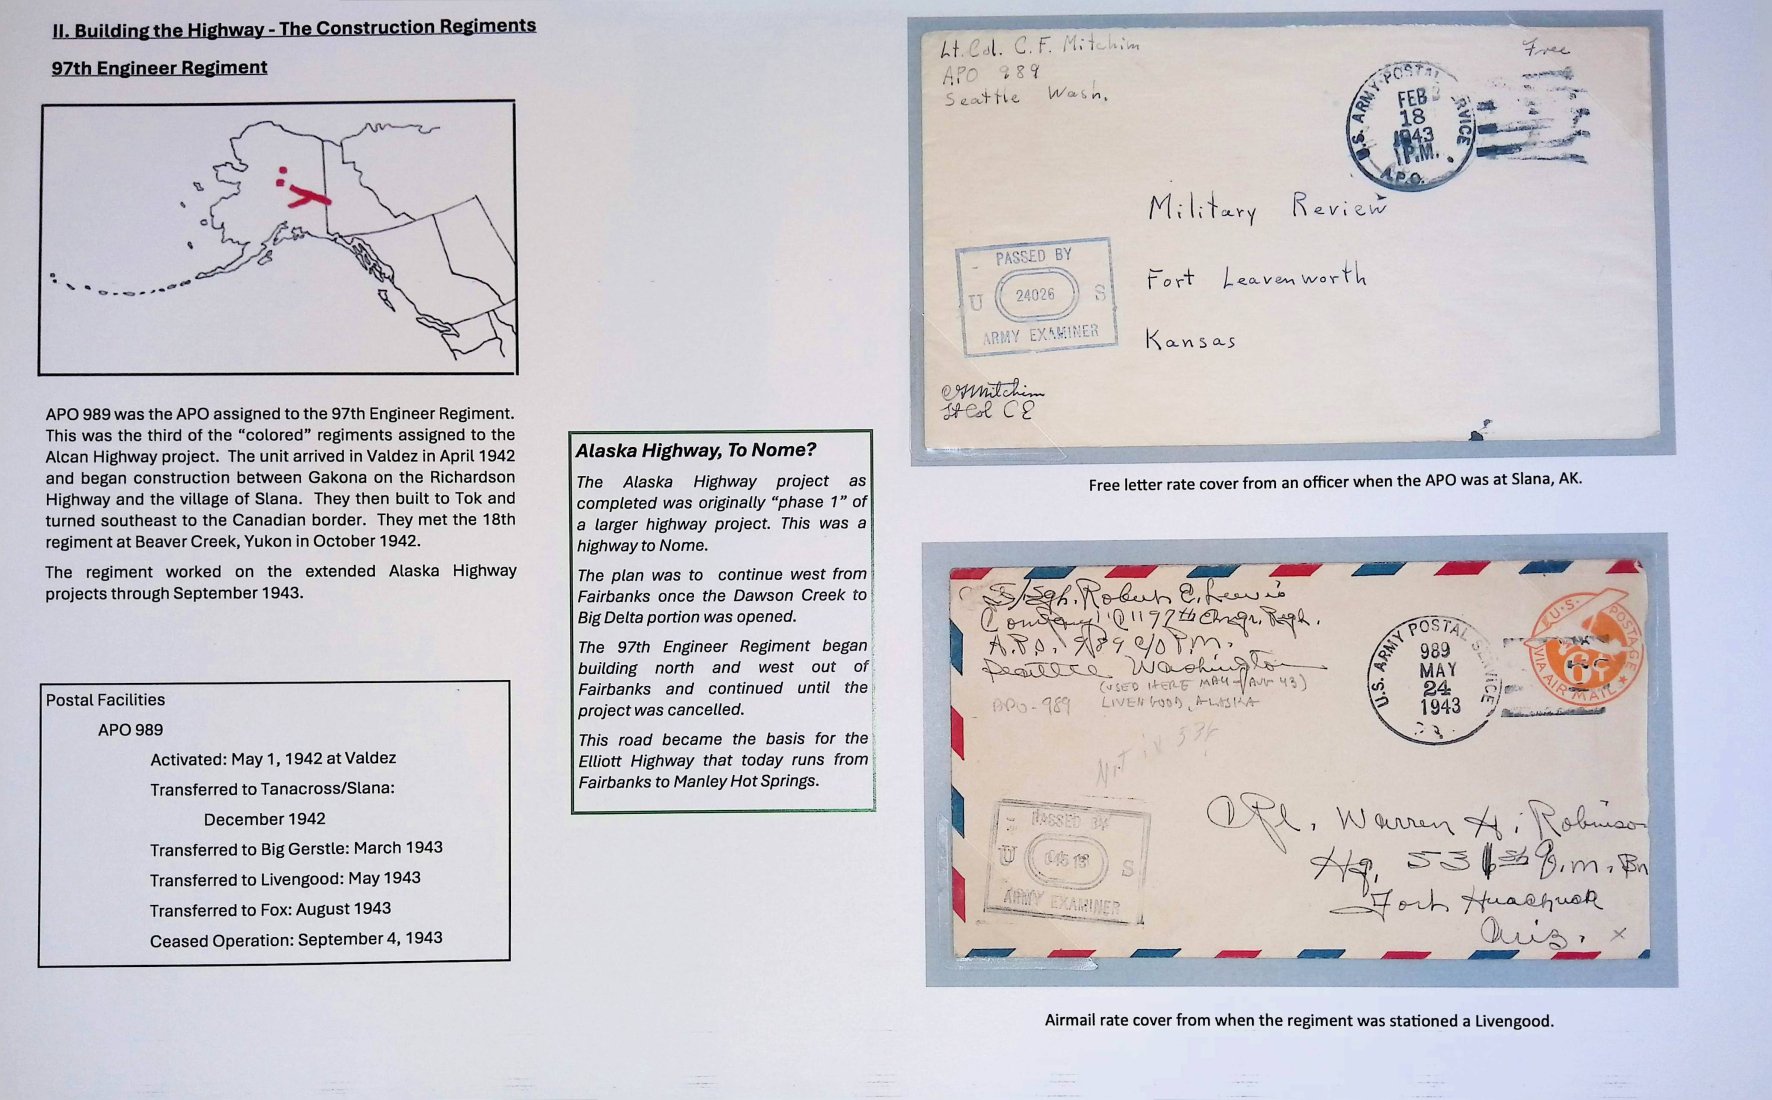 II. Building the Highway - The Construction Regiments
97th Engineer Regiment
APO 989 was the APO assigned to the 97th Engineer Regiment.
This was the third of the “colored” regiments assigned to the
Alcan Highway project. The unit arrived in Valdez in April 1942
and began construction between Gakona on the Richardson
Highway and the village of Slana. They then built to Tok and
turned southeast to the Canadian border. They met the 18th
regiment at Beaver Creek, Yukon in October 1942.
The regiment worked on the extended Alaska Highway
projects through September 1943.
Postal Facilities
APO 989
Activated: May 1, 1942 at Valdez
Transferred to Tanacross/Slana:
December 1942
Transferred to Big Gerstle: March 1943
Transferred to Livengood: May 1943
Transferred to Fox: August 1943
Ceased Operation: September 4, 1943
Alaska Highway, To Nome?
The Alaska Highway project as
completed was originally “phase 1” of
a larger highway project. This was a
highway to Nome.
The plan was to continue west from
Fairbanks once the Dawson Creek to
Big Delta portion was opened.
The 97th Engineer Regiment began
building north and west out of
Fairbanks and continued until the
project was cancelled.
This road became the basis for the
Elliott Highway that today runs from
Fairbanks to Manley Hot Springs.
Lt. Col. C. F. Mitchim
APO 989
Seattle Wash.
Free
U.S. ARMY POSTAL SERVICE
FEB
18
1943
1 P.M.
A.P.O.
Military Review
Fort Leavenworth
Kansas
PASSED BY
U 24026 S
ARMY EXAMINER
CFMitchim
Lt Col CE
Free letter rate cover from an officer when the APO was at Slana, AK.
S/Sgt. Robert E. Lewis
Company 97th Engr. Regt.
A.P.O. 989 c/o P.M.
Seattle Washington
(USED HERE MAY - AUG 43)
APO-989 LIVENGOOD, ALASKA
Not in
U.S. ARMY POSTAL SERVICE
989
MAY
24
1943
U.S. POSTAGE
6¢
VIA AIR MAIL
PASSED BY
U S
ARMY EXAMINER
Cpl. Warren H. Robinson
Hq. Q.M. Bn
Fort Huachuca
Ariz. x
Airmail rate cover from when the regiment was stationed a Livengood.